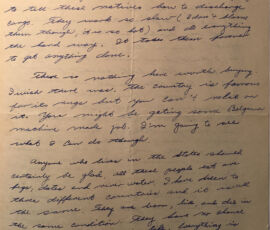 to tell these natives how to discharge
cargo. They work so slow (I don't blame
them though, its so hot) and do everything
the hard way. It takes them forever
to get anything done.
There is nothing here worth buying.
I wish there was. The country is famous
for its rugs but you can't get
it. You might be getting some Belgium
machine made job. I'm going to see
what I can do though.
Anyone who lives in the States should
certainly be glad, all these people eat are
figs, dates and river water. I have been to
three different countries and it is
the same. They are born, live and die in
the same condition. They have no chance
Everything is